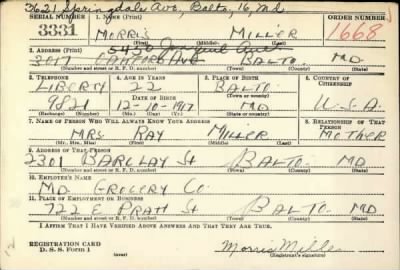 3621 Springdale Ave, Balto, 16 Md
SERIAL NUMBER 1. NAME (Print) ORDER NUMBER
3331 MORRIS MILLER 1668
(First) (Middle) (Last)
2. ADDRESS (Print)
3017 OAKFORD AVE BALTO. MD
(Number and street or R. F. D. number) (Town) (County) (State)
3. TELEPHONE 4. AGE IN YEARS 5. PLACE OF BIRTH 6. COUNTRY OF CITIZENSHIP
LIBERTY 22 BALTO.
DATE OF BIRTH (Town or county)
9821 12-10-1917 MD U.S.A.
(Exchange) (Number) (Mo.) (Day) (Yr.) (State or country)
7. NAME OF PERSON WHO WILL ALWAYS KNOW YOUR ADDRESS 8. RELATIONSHIP OF THAT PERSON
MRS RAY MILLER MOTHER
(Mr., Mrs., Miss) (First) (Middle) (Last)
9. ADDRESS OF THAT PERSON
2301 BARCLAY St BALTO. MD
(Number and street or R. F. D. number) (Town) (County) (State)
10. EMPLOYER'S NAME
MD. GROCERY CO
11. PLACE OF EMPLOYMENT OR BUSINESS
722 E PRATT St BALTO. MD
(Number and street or R. F. D. number) (Town) (County) (State)
I AFFIRM THAT I HAVE VERIFIED ABOVE ANSWERS AND THAT THEY ARE TRUE.
REGISTRATION CARD
D. S. S. Form 1 Morris Miller
(Registrant's signature)